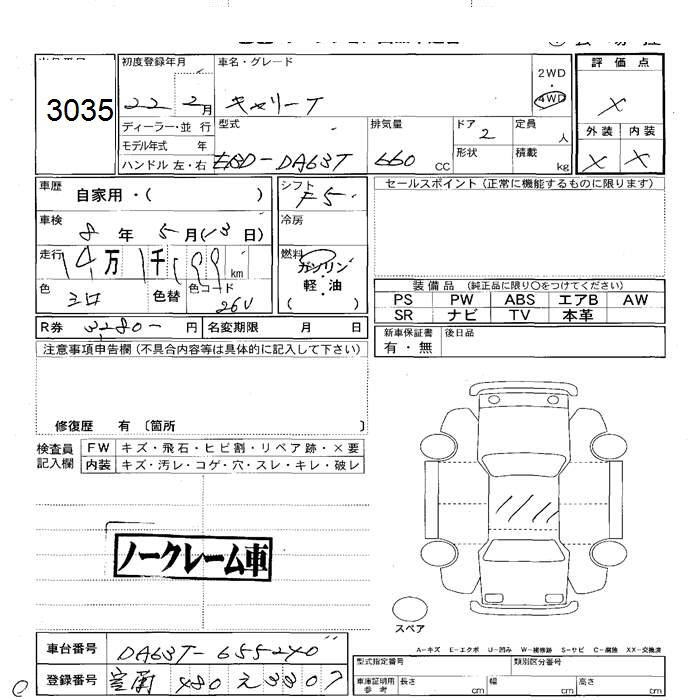 3035
初度登録年月
22 2月
車名・グレード
キャリーT
2WD
4WD
評価点
X
外装 内装
X X
ディーラー・並行
モデル年式 年
ハンドル 左・右
型式
EBD-DA63T
排気量
660 CC
ドア
2
形状
定員
人
積載
kg
車歴
自家用・( )
シフト
F5
セールスポイント (正常に機能するものに限ります)
車検
8 年 5 月(13 日)
冷房
走行
14万1千 km
燃料
ガソリン
軽・油
( )
色
シロ
色替
色コード
26U
装備品 (純正品に限り○をつけてください)
PS PW ABS エアB AW
SR ナビ TV 本革
R券
3280- 円
名変期限 月 日
新車保証書
有・無
後日品
注意事項申告欄 (不具合内容等は具体的に記入して下さい)
修復歴 有 〔箇所 〕
検査員
記入欄
FW キズ・飛石・ヒビ割・リペア跡・×要
内装 キズ・汚レ・コゲ・穴・スレ・キレ・破レ
ノークレーム車
スペア
A-キズ E-エクボ U-凹み W-補修跡 S-サビ C-腐蝕 XX-交換済
車台番号
DA63T-655240
登録番号
室蘭 480 え 3307
型式指定番号
類別区分番号
車庫証明用
参考
長さ cm
幅 cm
高さ cm